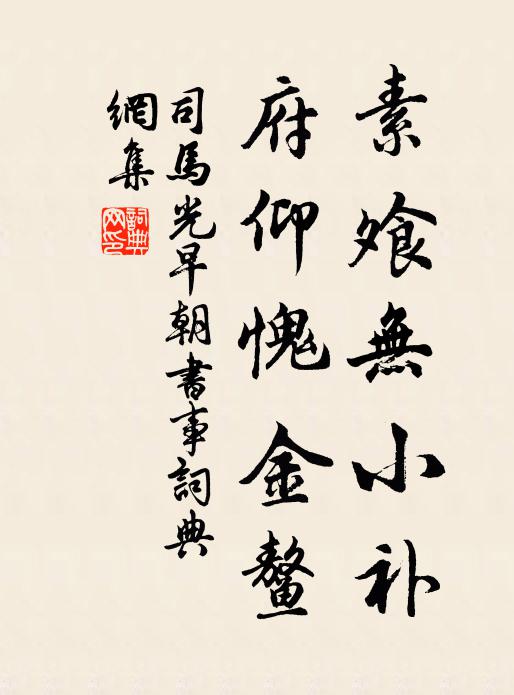 素飧無小补
府仰愧金鳌
司馬光早朝書事詞典
網集
詞典網印